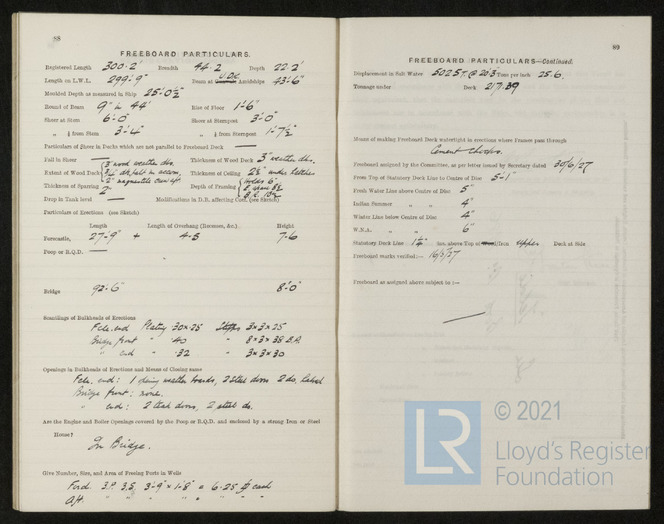 88
FREEBOARD PARTICULARS.
Registered Length 300·2' Breadth 44·2 Depth 22·2'
Length on L.W.L. 299'-9" Beam at Amidships 43'-6"
Moulded Depth as measured in Ship 25'-0½"
Round of Beam 9" in 44' Rise of Floor 1'-6"
Sheer at Stem 6'-0" Sheer at Sternpost 3'-0"
" ⅛ from Stem 3'-4" " ⅛ from Sternpost 1'-7½"
Particulars of Sheer in Decks which are not parallel to Freeboard Deck —
Fall in Sheer — Thickness of Wood Deck 3" weather dks.
Extent of Wood Deck 3" wood weather dks. Thickness of Ceiling 2½" under hatches
Thickness of Sparring 2" Depth of Framing Holds 6"
Drop in Tank level — Modifications in D.B. affecting Cert. (see Sketch)
Particulars of Erections (see Sketch)
Length Length of Overhang (Recesses, &c.) Height
Forecastle, 27'-9" + 4-3 7-6
Poop or R.Q.D. —
Bridge 92'-6" 8'-0"
Scantlings of Bulkheads of Erections
Fcle. end Plating 30 × 25 Stiffrs 3×3×25
Bridge front " 40 " 8×3×38 B.A.
" end " 32 " 3×3×30
Openings in Bulkheads of Erections and Means of Closing same
Fcle. end: 1 weather boards, 2 steel doors 2 do.
Bridge front: none.
" end: 2 teak doors, 2 steel do.
Are the Engine and Boiler Openings covered by the Poop or R.Q.D. and enclosed by a strong Iron or Steel
House?
In Bridge.
Give Number, Size, and Area of Freeing Ports in Wells
Ford 3.P. 3.S. 3'-9" × 1'-8" = 6·25 each
Aft " " " " " "
89
FREEBOARD PARTICULARS—Continued.
Displacement in Salt Water 5025 T. @ 20'3" Tons per inch 25·6.
Tonnage under Deck 2171·39
Means of making Freeboard Deck watertight in erections where Frames pass through
Cement Chocks.
Freeboard assigned by the Committee, as per letter issued by Secretary dated 30/6/27
From Top of Statutory Deck Line to Centre of Disc 5'-1"
Fresh Water Line above Centre of Disc 5"
Indian Summer " " 4"
Winter Line below Centre of Disc 4"
W.N.A. " " 6"
Statutory Deck Line 1¼" Ins. above Top of Iron Upper Deck at Side
Freeboard marks verified:— 16/5/27
Freeboard as assigned above subject to:—
—
LR © 2021
Lloyd's Register
Foundation